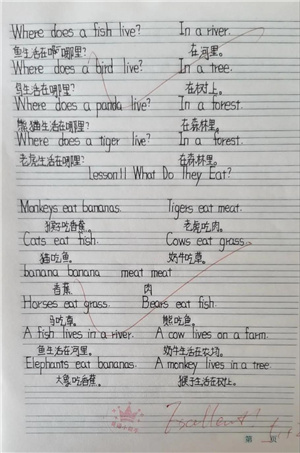 Where does a fish live? In a river.
鱼生活在哪里? 在河里。
Where does a bird live? In a tree.
鸟生活在哪里? 在树上。
Where does a panda live? In a forest.
熊猫生活在哪里? 在森林里。
Where does a tiger live? In a forest.
老虎生活在哪里? 在森林里。
Lesson 11 What Do They Eat?
Monkeys eat bananas. Tigers eat meat.
猴子吃香蕉。 老虎吃肉。
Cats eat fish. Cows eat grass.
猫吃鱼。 奶牛吃草。
banana banana meat meat
香蕉 肉
Horses eat grass. Bears eat fish.
马吃草。 熊吃鱼。
A fish lives in a river. A cow lives on a farm.
鱼生活在河里。 奶牛生活在农场。
Elephants eat bananas. A monkey lives in a tree.
大象吃香蕉。 猴子生活在树上。
Excellent!
第 页